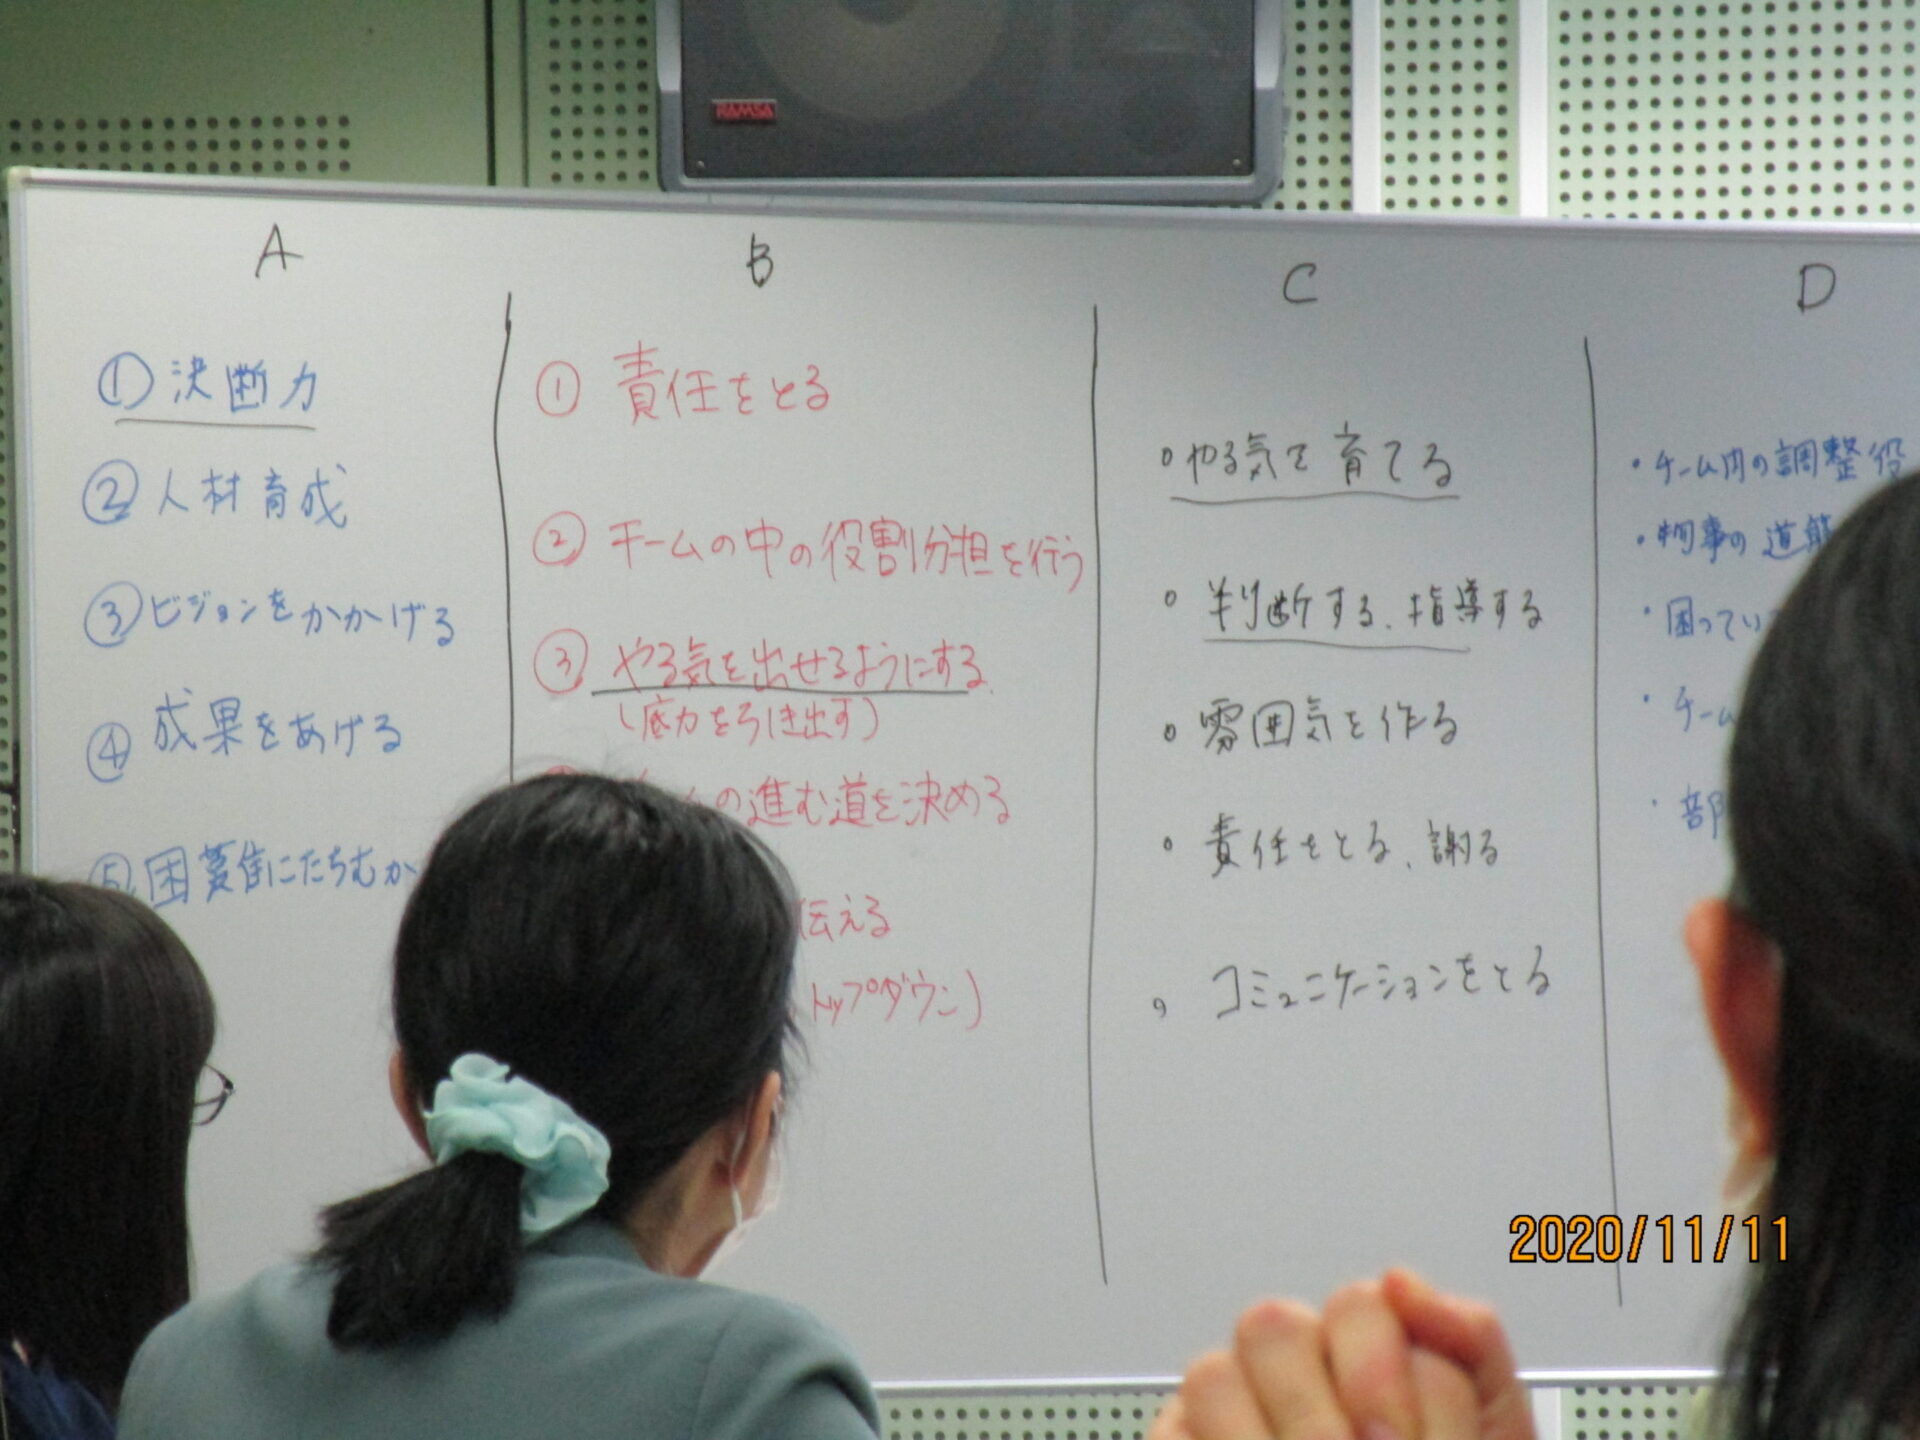 RAMSA
A
①決断力
②人材育成
③ビジョンをかかげる
④成果をあげる
⑤困難にたちむか
B
①責任をとる
②チームの中の役割分担を行う
③やる気を出せるようにする
(底力を引き出す)
の進む道を決める
伝える
トップダウン)
C
・やる気を育てる
・判断する、指導する
・雰囲気を作る
・責任をとる、謝る
・コミュニケーションをとる
D
・チーム内の調整役
・物事の道
・困ってい
・チーム
・部
2020/11/11